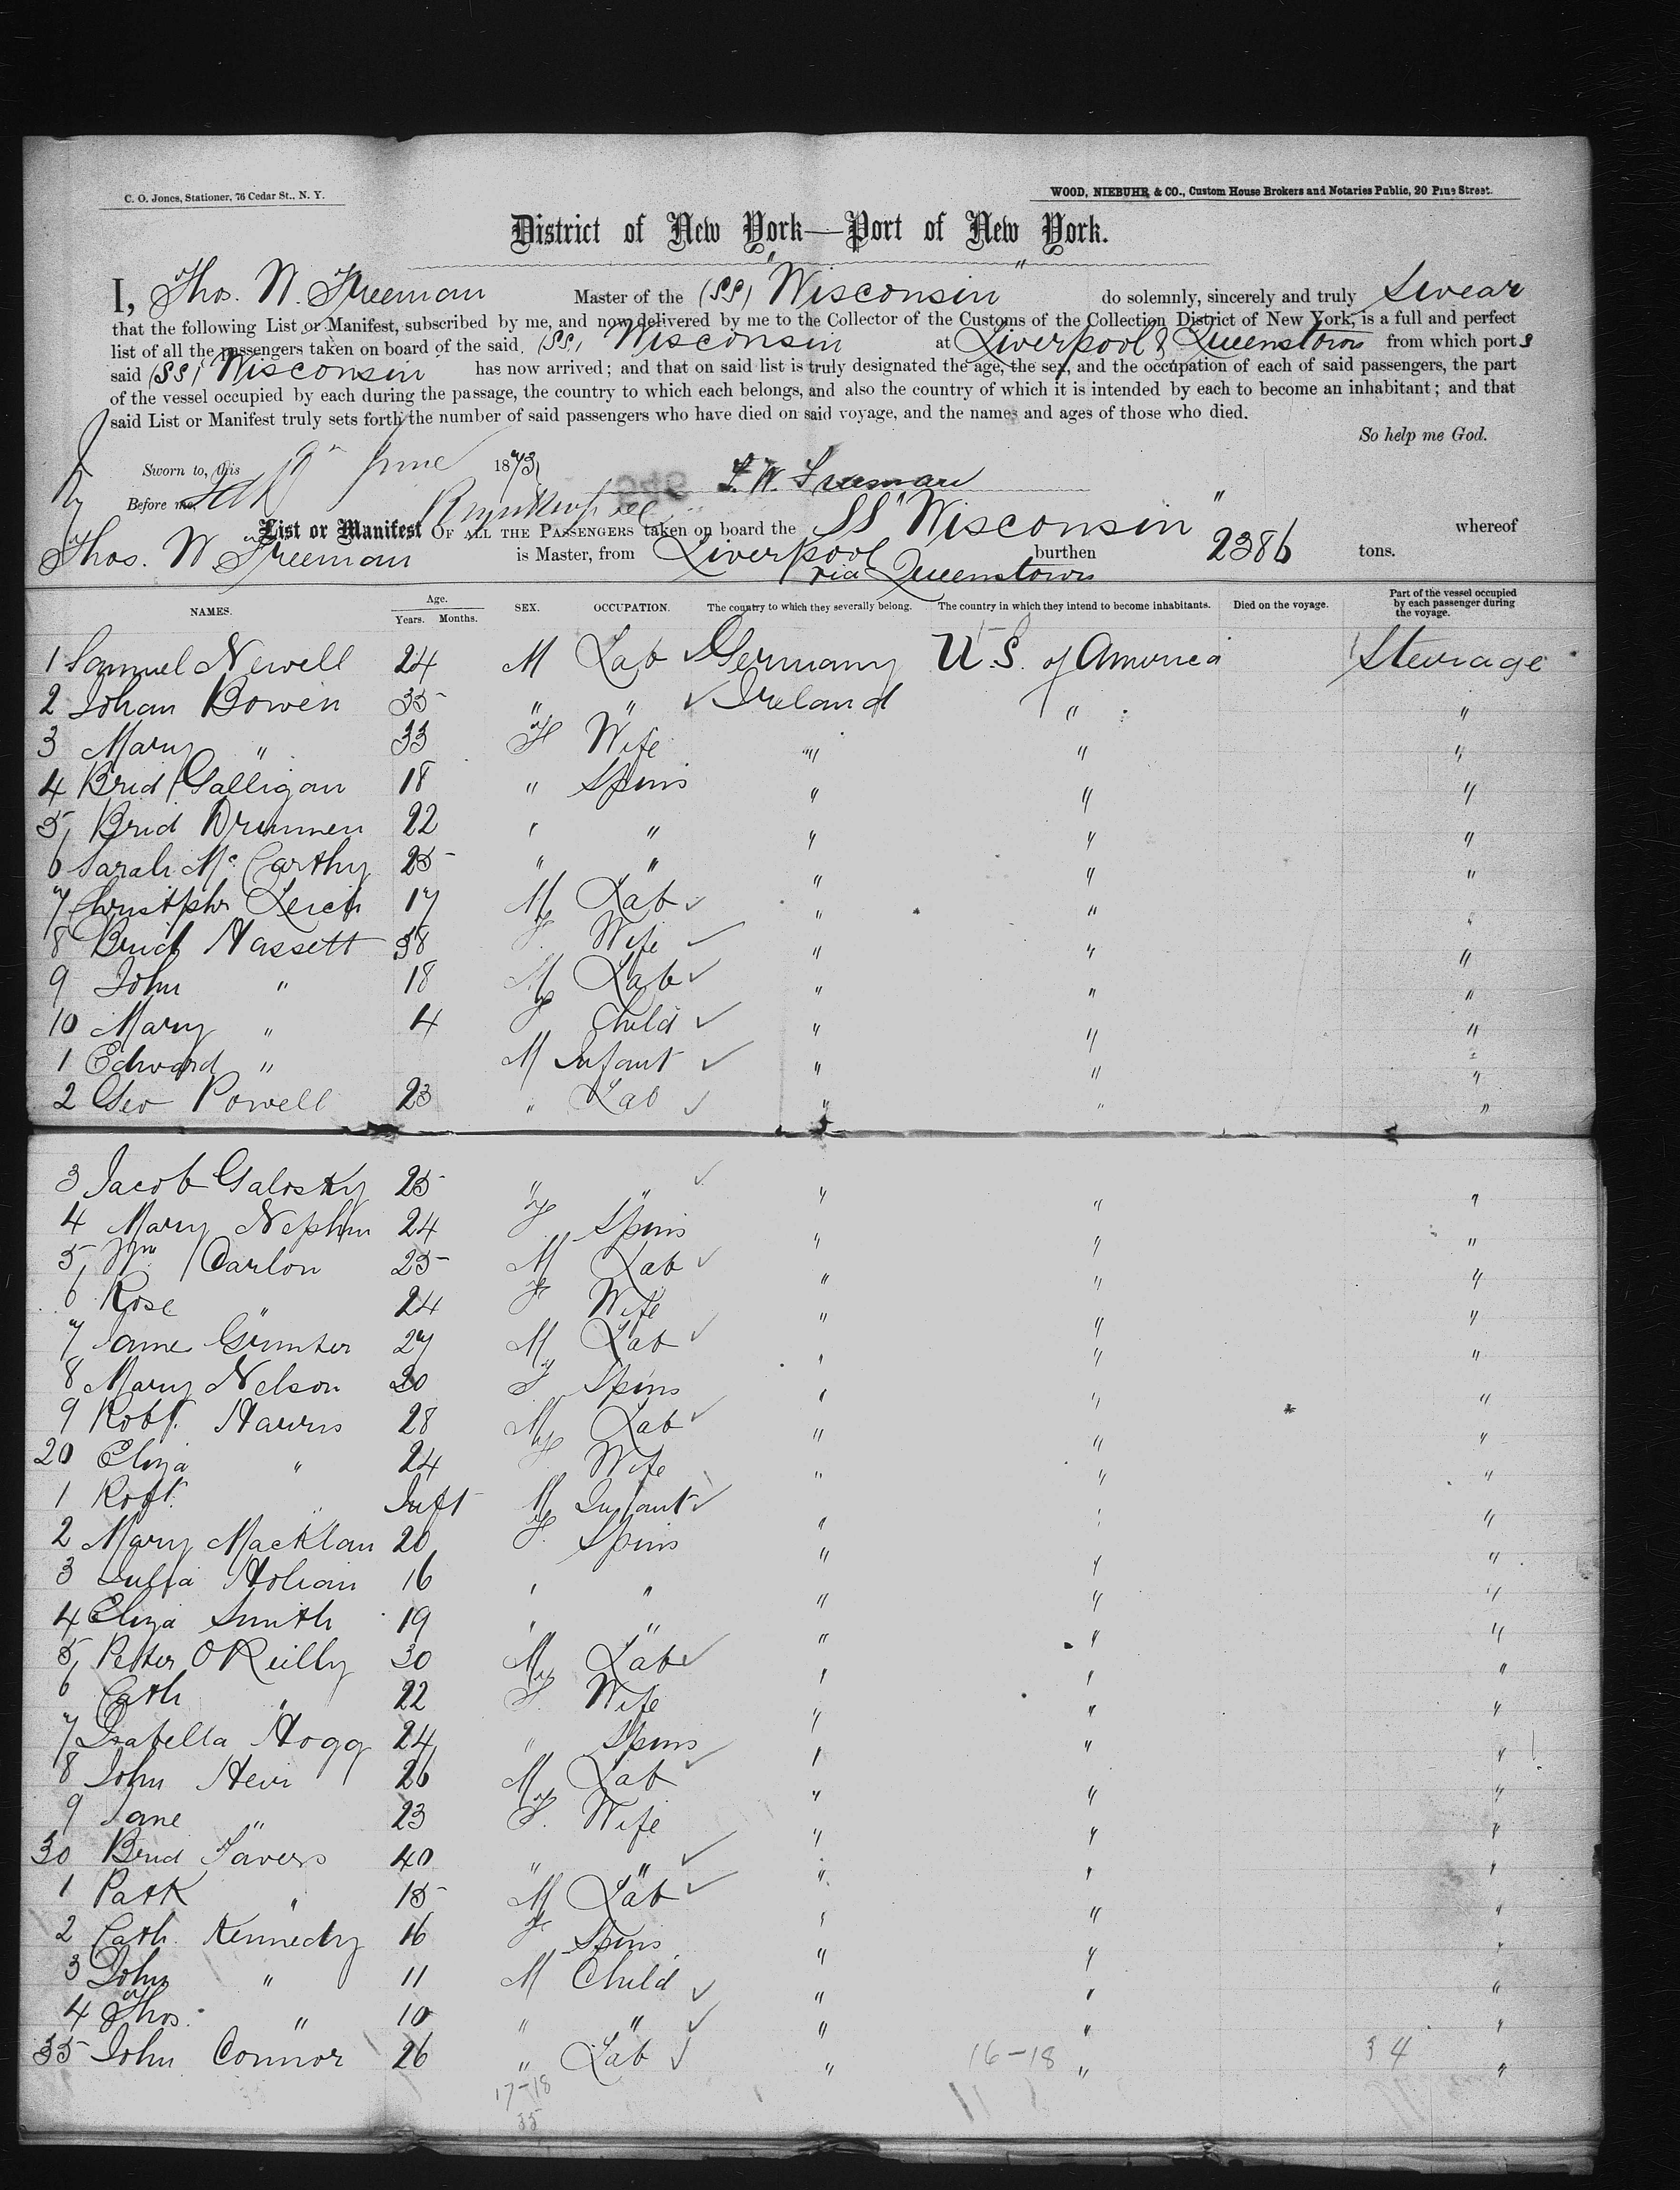 C. O. Jones, Stationer, 76 Cedar St., N. Y.
WOOD, NIEBUHR & CO., Custom House Brokers and Notaries Public, 20 Pine Street.
District of New York—Port of New York.
I, Thos. W. Freeman Master of the (SS) "Wisconsin" do solemnly, sincerely and truly Swear
that the following List or Manifest, subscribed by me, and now delivered by me to the Collector of the Customs of the Collection District of New York, is a full and perfect
list of all the passengers taken on board of the said (SS) Wisconsin at Liverpool & Queenstown from which ports
said (SS) Wisconsin has now arrived; and that on said list is truly designated the age, the sex, and the occupation of each of said passengers, the part
of the vessel occupied by each during the passage, the country to which each belongs, and also the country of which it is intended by each to become an inhabitant; and that
said List or Manifest truly sets forth the number of said passengers who have died on said voyage, and the names and ages of those who died.
So help me God.
Sworn to, this June 1873
T. W. Freeman
Before me,
List or Manifest OF ALL THE PASSENGERS taken on board the SS "Wisconsin" whereof
Thos. W. Freeman is Master, from Liverpool burthen 2386 tons.
via Queenstown
NAMES. Age. Years. Months. SEX. OCCUPATION. The country to which they severally belong. The country in which they intend to become inhabitants. Died on the voyage. Part of the vessel occupied by each passenger during the voyage.
1 Samuel Newell 24 M Lab Germany U.S. of America Steerage
2 Johan Bowen 35 " " Ireland " "
3 Mary " 33 F Wife " " "
4 Brid Galligan 18 " Spins " " "
5 Brid Drunnen 22 " " " " "
6 Sarah McCarthy 25 " " " " "
7 Christphr 17 M Lab " " "
8 Brid Hassett 38 F. Wife " " "
9 John " 18 M Lab " " "
10 Mary " 4 F Child " " "
1 Edward " M Infant " " "
2 Geo Powell 23 " Lab " " "
3 Jacob Galosky 25 " " " " "
4 Mary Nephin 24 F Spins " " "
5 Wm Carlon 25 M Lab " " "
6 Rose " 24 F Wife " " "
7 Jame Gunter 27 M Lab " " "
8 Mary Nelson 20 F Spins " " "
9 Robt. Harris 28 M Lab " " "
20 Eliza " 24 F Wife " " "
1 Robt. " Inft M Infant " " "
2 Mary Macklan 20 F. Spins " " "
3 Julia Holian 16 " " " " "
4 Eliza Smith 19 " " " " "
5 Peter O'Reilly 30 M Lab " " "
6 Cath " 22 F. Wife " " "
7 Isabella Hogg 24 " Spins " " "
8 John Heir 26 M Lab " " "
9 Jane " 23 F. Wife " " "
30 Brid Tavers 40 " " " " "
1 Patk " 15 M Lab " " "
2 Cath. Kennedy 16 F Spins " " "
3 John " 11 M Child " " "
4 Thos. " 10 " " " " "
35 John Connor 26 " Lab " " "
16-18 34
17-18
35